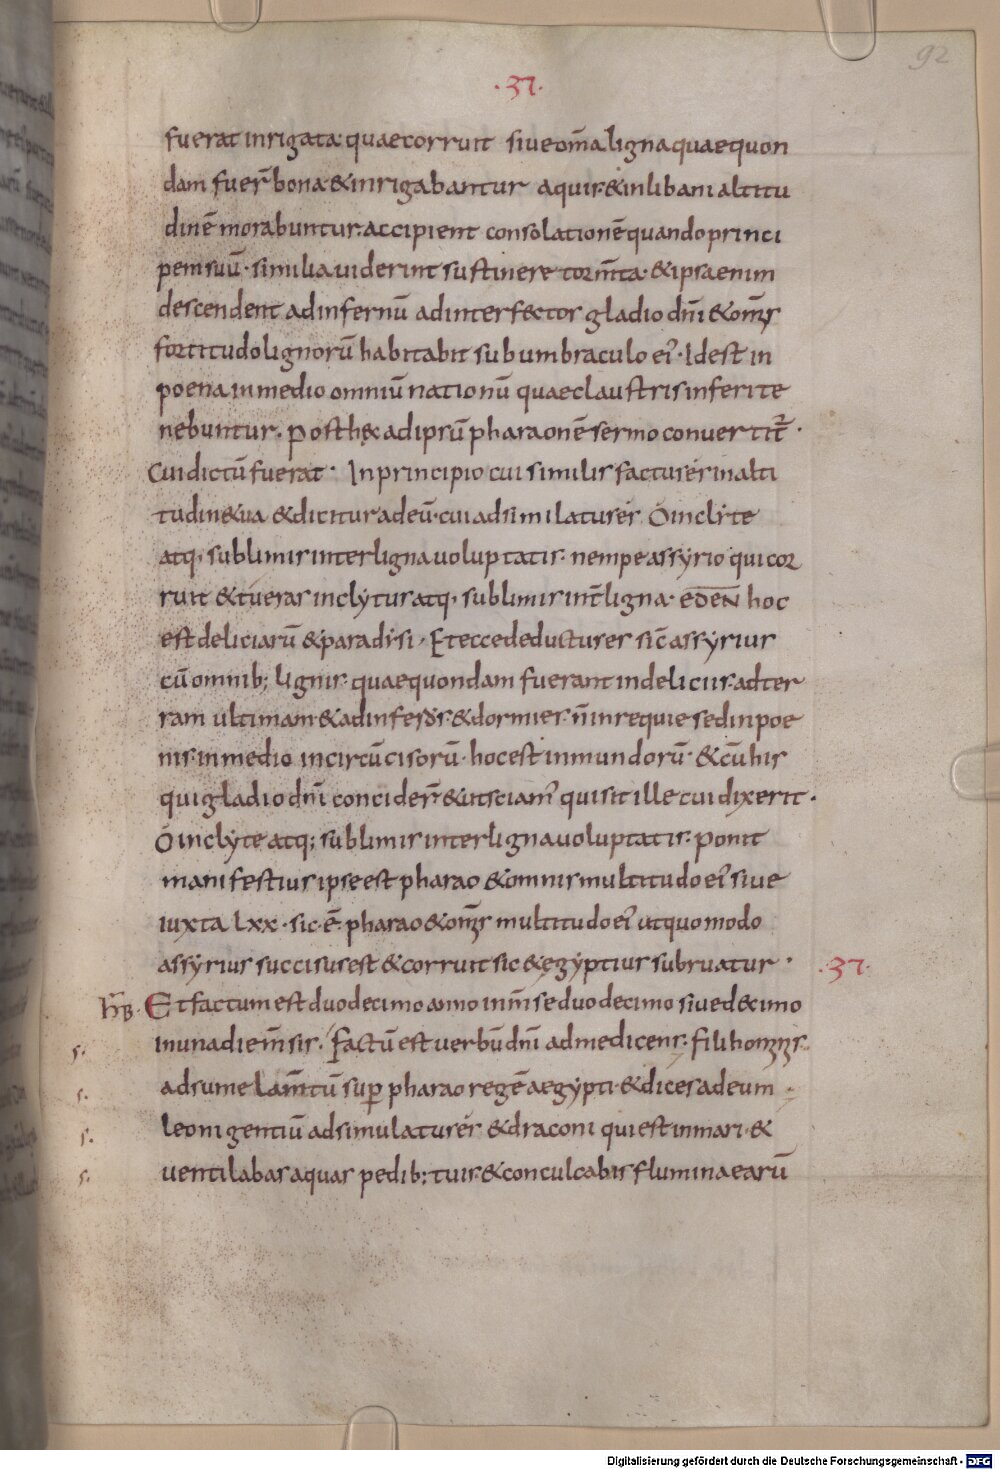 92
·37·
fuerat inrigata· quae corruit siue om̄a ligna quae quon
dam fuer̄ bona· & inrigabantur aquis· & in libani altitu
dinē morabuntur· accipient consolationē quando princi
pem suū· similia uiderint sustinere torm̄ta· & ipsa enim
descendent ad infernū ad interfector gladio dn̄i & om̄s
fortitudo lignorū habitabit sub umbraculo ei᾽· Id est in
poena in medio omniū nationū quae claustris inferi te
nebuntur. Post hęc ad ipsū pharaonē sermo conuertit̄·
Cui dictū fuerat· In principio cui similis factus és in alti
tudine tua & dicitur ad eū· cui adsimilatus és Ó inclyte
atq· sublimis inter ligna uoluptatis· nempe assyrio qui cor
ruit & tu eras inclytus atq· sublimis int̄ ligna· EDEN hoc
est deliciarū & paradysi· Et ecce deductus es sic̄ assyrius
cū omnib; lignis· quae quondam fuerant in deliciis· ad ter
ram ultimam & ad inferos· & dormies· n̄ in requie sed in poe
nis· in medio incircūcisorū· hoc est inmundorū· & cū his
qui gladio dn̄i concider̄ & ut sciam᾽ quis sit ille cui dixerit·
Ó inclyte atq; sublimis inter ligna uoluptatis· ponit
manifestius ipse est pharao & omnis multitudo ei᾽ siue
iuxta LXX· sic· ē· pharao & om̄s multitudo ei᾽ ut quomodo
assyrius succisus est & corruit sic & ęgyptius subruatur· ·37·
H̄B· Et factum est duodecimo anno in m̄se duodecimo siue decimo
s· in una die m̄sis· Factū est uerbū dn̄i ad me dicens· fili hominis
s· adsume lam̄tū sup̱ pharao regē aegypti· & dices ad eum
s· leoni gentiū adsimulatus és & draconi qui est in mari· &
s· uentilabas aquas pedib; tuis· & conculcabis flumina earū
Digitalisierung gefördert durch die Deutsche Forschungsgemeinschaft - DFG